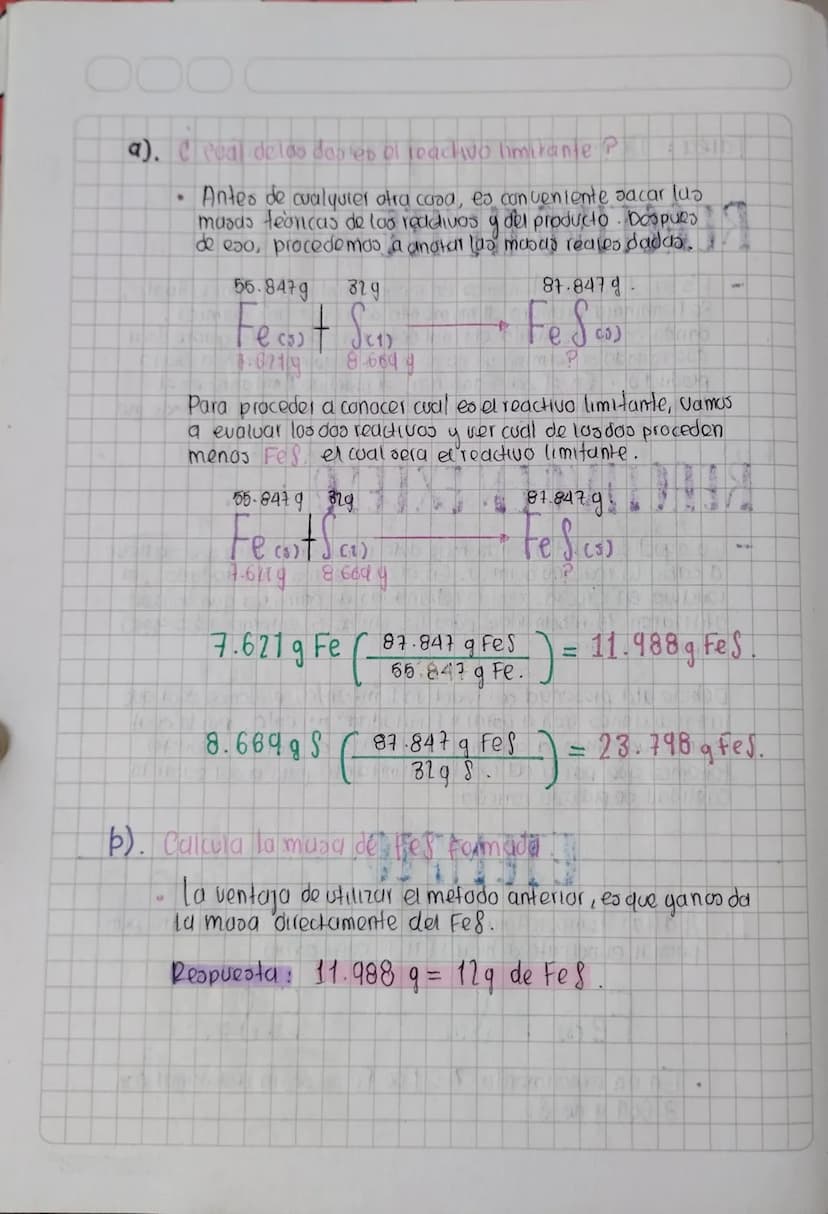 a). ¿ cual de las dos es el reactivo limitante ?
• Antes de cualquier otra cosa, es conveniente sacar las
masas teóricas de los reactivos y del producto. Despues
de eso, procedemos a anotar las masas reales dadas.
55.847g 32g 87.847g.
Fe(s) + S(l) → FeS(s)
7.621g 8.669 g ?
Para proceder a conocer cual es el reactivo limitante, vamos
a evaluar los dos reactivos y ver cual de los dos proceden
menos FeS el cual sera el reactivo limitante.
55.847 g 32g 87.847g
Fe(s) + S(l) → FeS(s)
7.621g 8.669 g ?
7.621 g Fe ( 87.847 g FeS
55.847 g Fe. ) = 11.988g FeS.
8.669g S ( 87.847 g FeS
32g S. ) = 23.798 g FeS.
b). Calcula la masa de FeS formada
• la ventaja de utilizar el metodo anterior, es que ya nos da
la masa directamente del FeS.
Respuesta: 11.988 g = 12g de FeS.